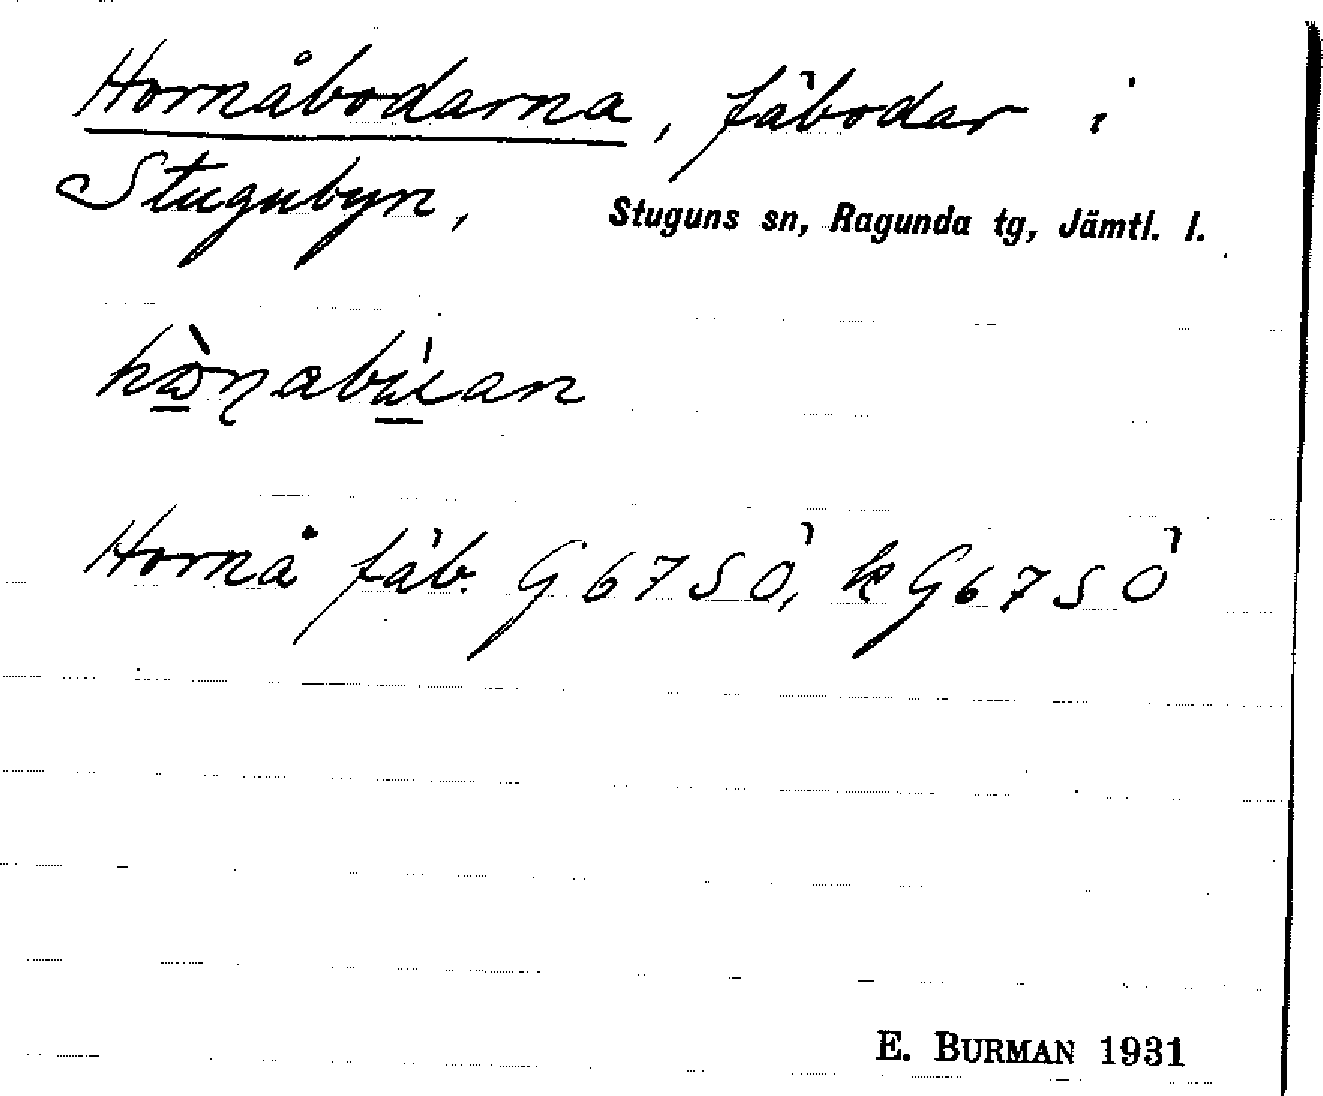 Hornåbodarna, fäbodar i
Stugubyn, Stuguns sn, Ragunda tg, Jämtl. l.
Hornå fäb. G67SÖ, k G67SÖ
E. BURMAN 1931